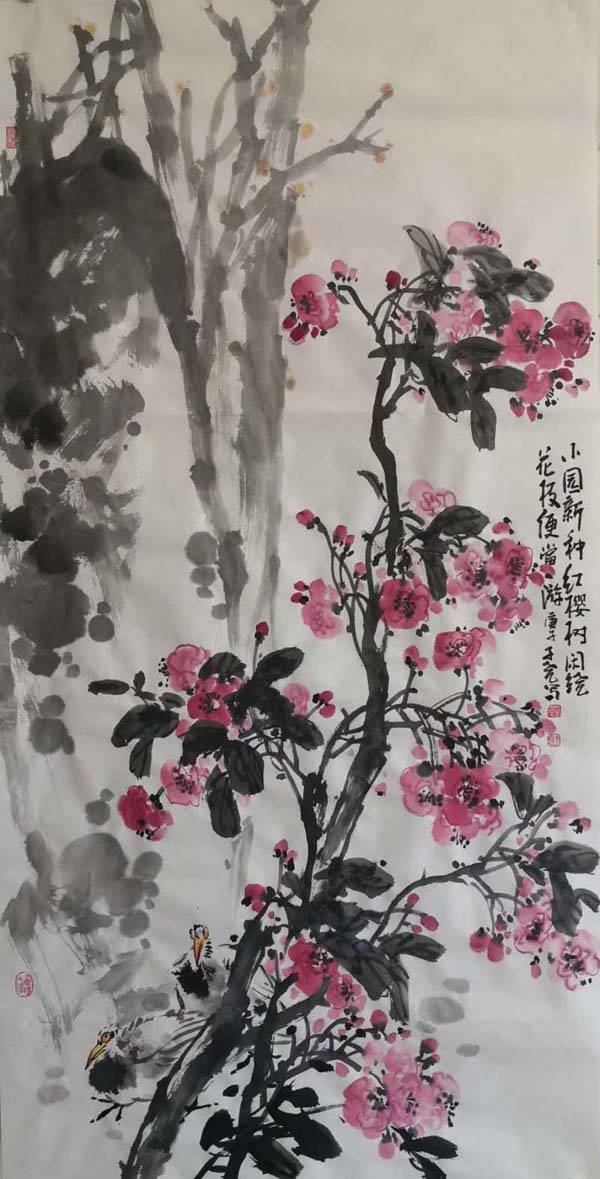 小园新种红樱树闲绕
花枝便當游 庚子 写